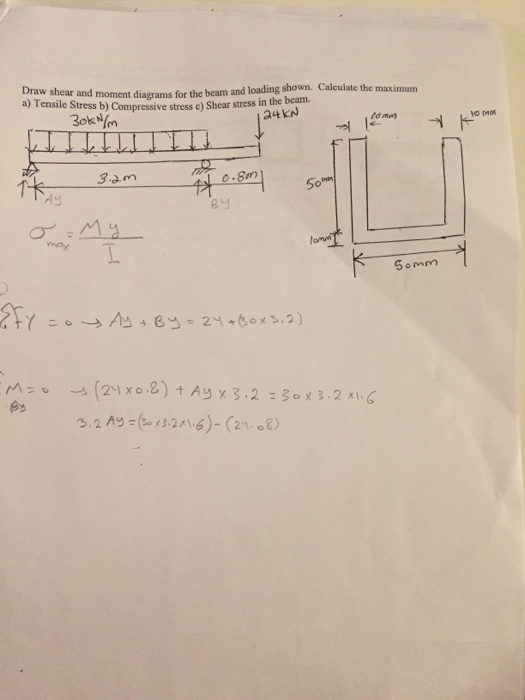 Draw shear and moment diagrams for the beam and loading shown. Calculate the maximum
a) Tensile Stress b) Compressive stress c) Shear stress in the beam.
30kN/m
24KN
10mm
10 mm
3.2m
0.8m
50mm
Ay
By
10mm
50mm
σmax = My/I
ΣFY = 0 → Ay + By = 24 + (30x3.2)
M = 0 → (24x0.8) + Ay x 3.2 = 30x3.2x1.6
By
3.2 Ay = (30x3.2x1.6) - (24.08)